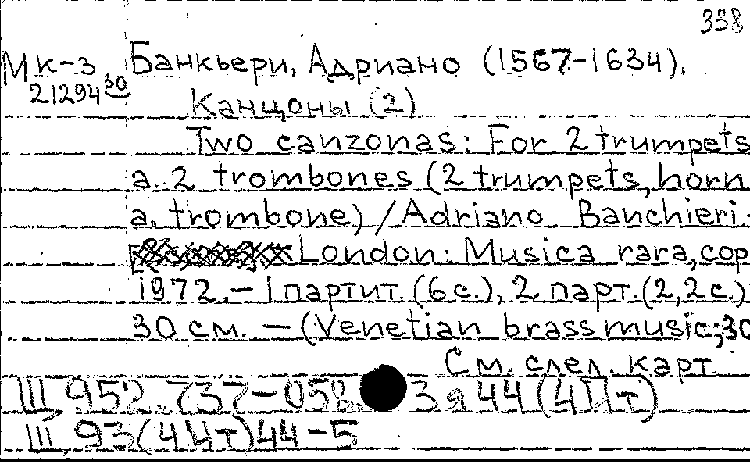 338
Мк-з Банкьери, Адриано (1567-1634).
21294 30
Канцоны (2)
Two canzonas: For 2 trumpets
a. 2 trombones (2 trumpets, horn
a. trombone) / Adriano Banchieri.
London: Musica rara, cop
1972. – 1 партит. (6 с.), 2 парт. (2,2 с.)
30 см. – (Venetian brass music; 30
См. след. карт
Ш 952.737-058 3я44(4Ит)
Ш 93(4Ит)44-5